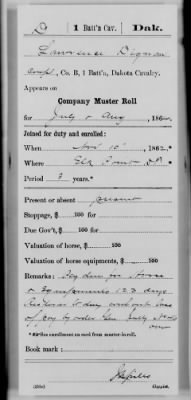 D | 1 Batt'n Cav. | Dak.
Lawrence Dignan
Corpl, Co. B, 1 Batt'n, Dakota Cavalry.
Appears on
Company Muster Roll
for July & Aug, 1864.
Joined for duty and enrolled:
When Nov 10, 1862.*
Where Elk Point D.T.
Period 3 years.*
Present or absent present
Stoppage, $ 100 for
Due Gov't, $ 100 for
Valuation of horse, $ 100
Valuation of horse equipments, $ 100
Remarks: Pay due for horse
& Equipments 123 days
Restored to duty without loss
of pay by order Gen Sully
*See enrollment on card from muster-in roll.
Book mark:
(358c) Copyist.